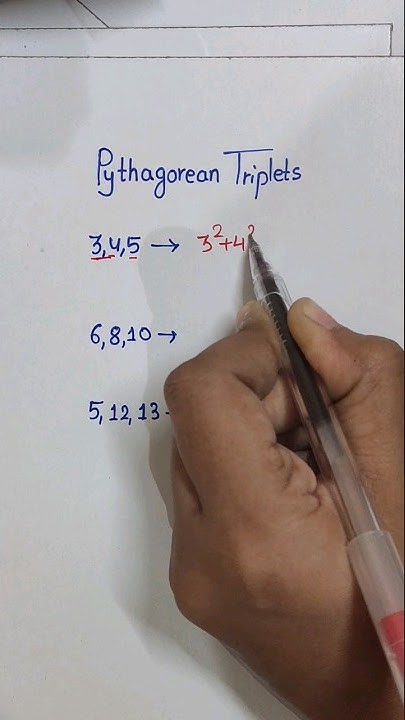 Pythagorean Triplets
3,4,5 → 3²+4²
6,8,10 →
5,12,13